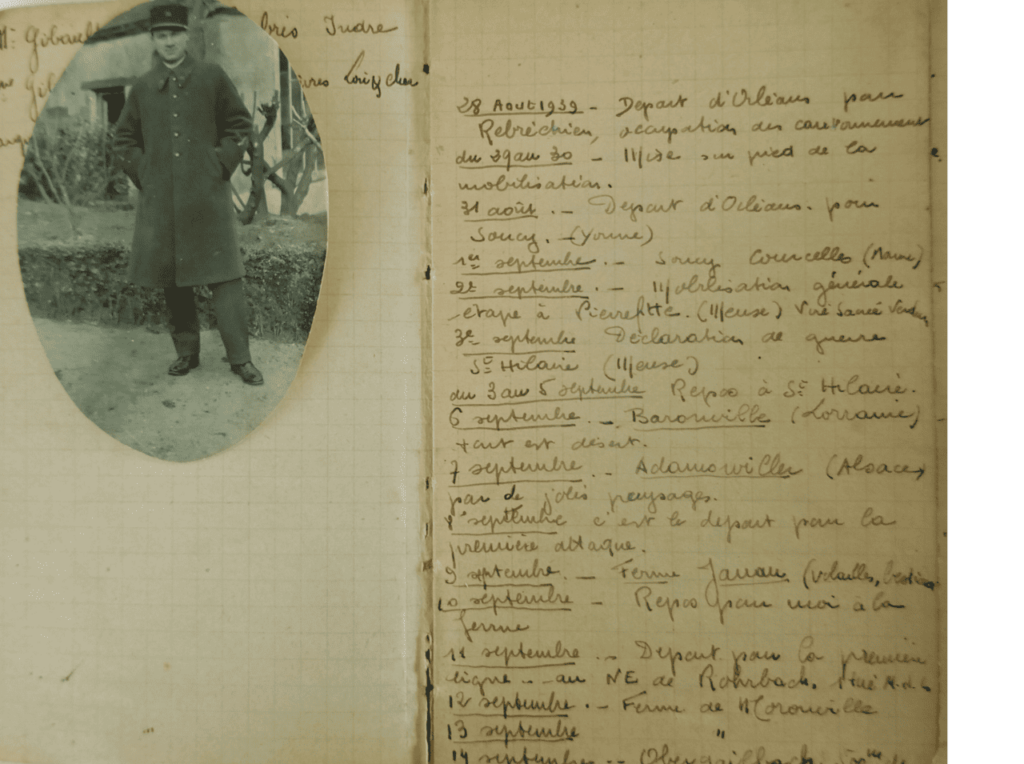 Mr Gibault
bres Indre
Loir & cher
28 Aout 1939 - Depart d'Orléans pour
Rebréchien, occupation des cantonnement
du 29 au 30 - Mise sur pied de la
mobilisation.
31 août. - Depart d'Orléans. pour
Soucy. - (Yonne)
1er septembre. - Soucy Courcelles (Marne)
2e septembre. - Mobilisation générale
etape à Pierrefitte. (Meuse)
3e septembre Déclaration de guerre
St Hilaire (Meuse)
du 3 au 5 septembre Repos à St Hilaire.
6 septembre. - Baronville (Lorraine)
tout est désert.
7 septembre. - Adamswiller (Alsace)
par de jolis paysages.
8 septembre c'est le depart pour la
première attaque.
9 septembre. - Ferme (volailles,
10 septembre - Repos pour moi à la
ferme
11 septembre. - Depart pour la première
ligne - - au NE de Rohrbach. 1 tué
12 septembre. - Ferme de Morouville
13 septembre "
14 septembre